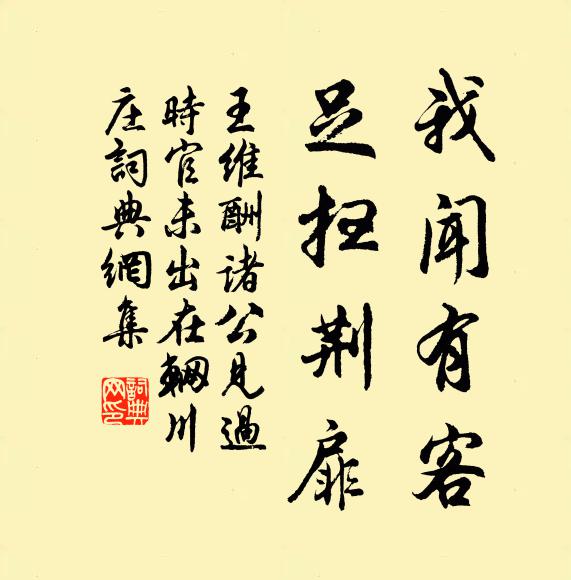 我闻有客
足扫荆扉
王维酬诸公见过
时官未出在辋川
庄词典网集
词典网印